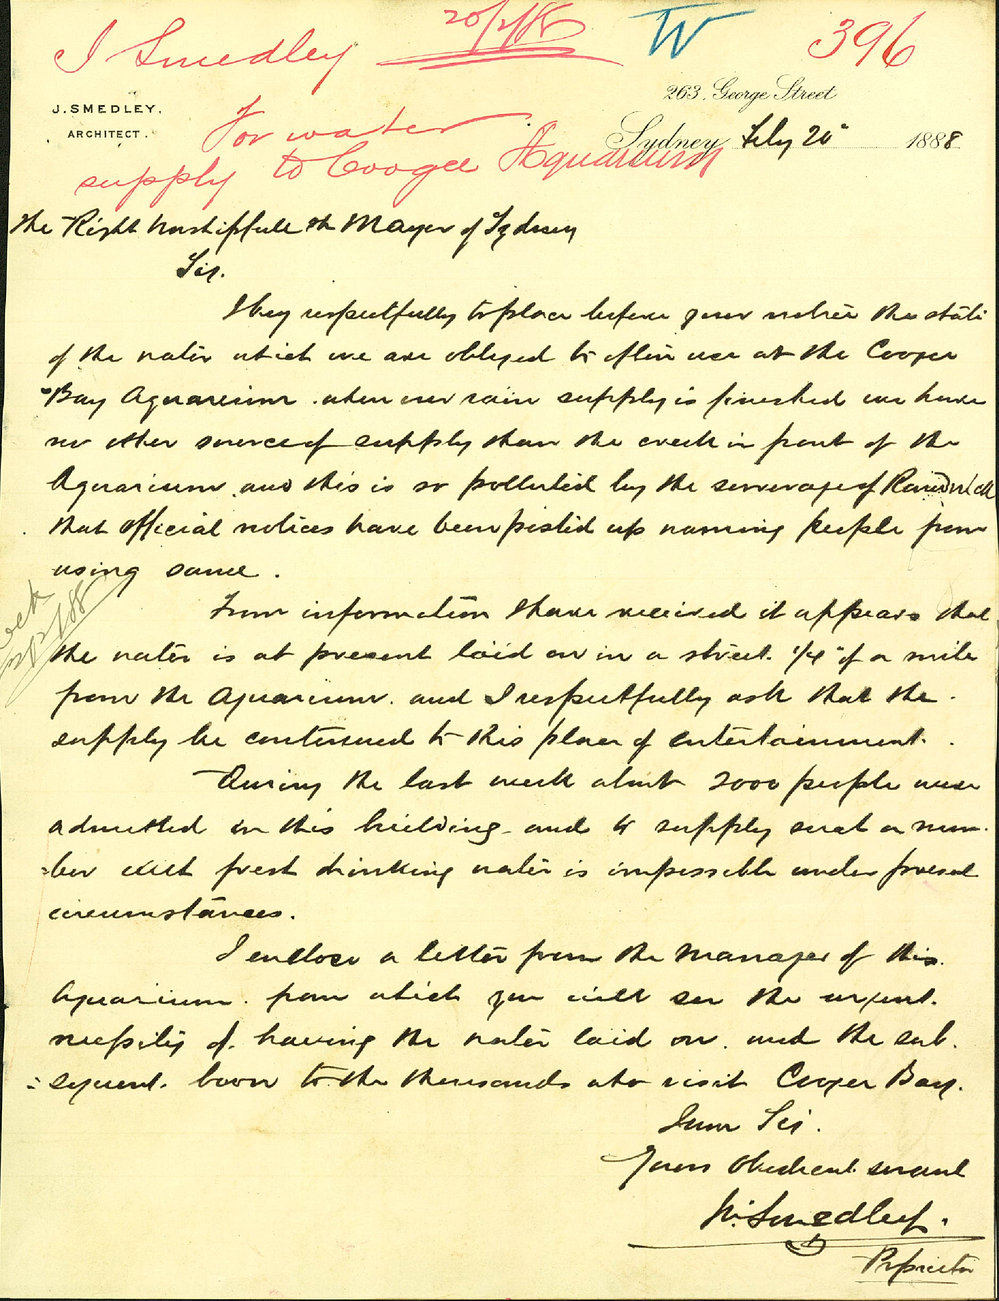 J Smedley
20/2/88
W
396
J. SMEDLEY.
ARCHITECT.
263, George Street
Sydney Feby 20th 1888
For water
supply to Coogee Aquarium
The Right Worshipfull the Mayor of Sydney
Sir.
I beg respectfully to place before your notice the state
of the water which we are obliged to often use at the Coogee
Bay Aquarium. when our rain supply is finished we have
no other source of supply than the creek in front of the
Aquarium and this is so polluted by the sewerage of Randwick
that official notices have been posted up warning people from
using same.
From information I have received it appears that
the water is at present laid on in a street 1/4 of a mile
from the Aquarium. and I respectfully ask that the
supply be continued to this place of entertainment.
During the last week about 2000 people were
admitted in this building - and to supply such a num-
-ber with fresh drinking water is impossible under present
circumstances.
I enclose a letter from the Manager of this
Aquarium. from which you will see the urgent
necessity of having the water laid on. and the sub-
-sequent boon to the thousands who visit Coogee Bay.
I am Sir.
Yours Obedient servant
Smedley.
Proprietor
2/2/88